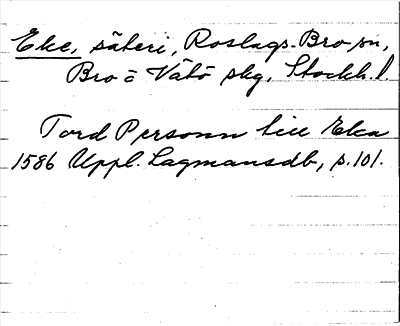 Eke, säteri, Roslags-Bro sn,
Bro o Vätö skg, Stockh. l.
Tord Personn till Eka
1586 Uppl. Lagmansdb, s. 101.